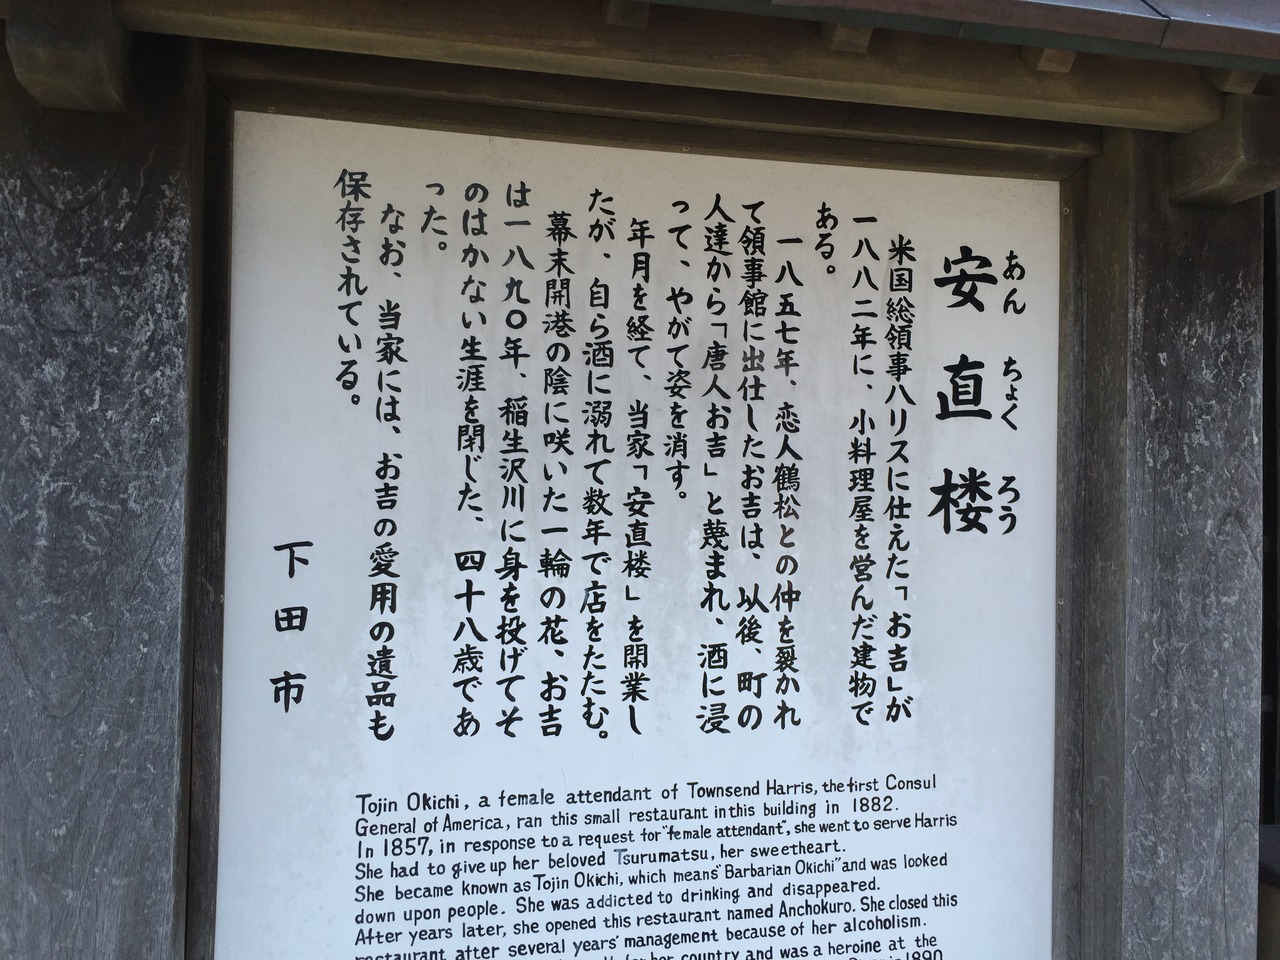 安直楼
あんちょくろう
米国総領事ハリスに仕えた「お吉」が
一八八二年に、小料理屋を営んだ建物で
ある。
一八五七年、恋人鶴松との仲を裂かれ
て領事館に出仕したお吉は、以後、町の
人達から「唐人お吉」と蔑まれ、酒に浸
って、やがて姿を消す。
年月を経て、当家「安直楼」を開業し
たが、自ら酒に溺れて数年で店をたたむ。
幕末開港の陰に咲いた一輪の花、お吉
は一八九〇年、稲生沢川に身を投げてそ
のはかない生涯を閉じた、四十八歳であ
った。
なお、当家には、お吉の愛用の遺品も
保存されている。
下田市
Tojin Okichi, a female attendant of Townsend Harris, the first Consul
General of America, ran this small restaurant in this building in 1882.
In 1857, in response to a request for "female attendant", she went to serve Harris
She had to give up her beloved Tsurumatsu, her sweetheart.
She became known as Tojin Okichi, which means "Barbarian Okichi" and was looked
down upon people. She was addicted to drinking and disappeared.
After years later, she opened this restaurant named Anchokuro. She closed this
restaurant after several years' management because of her alcoholism.
for her country and was a heroine at the
in 1890